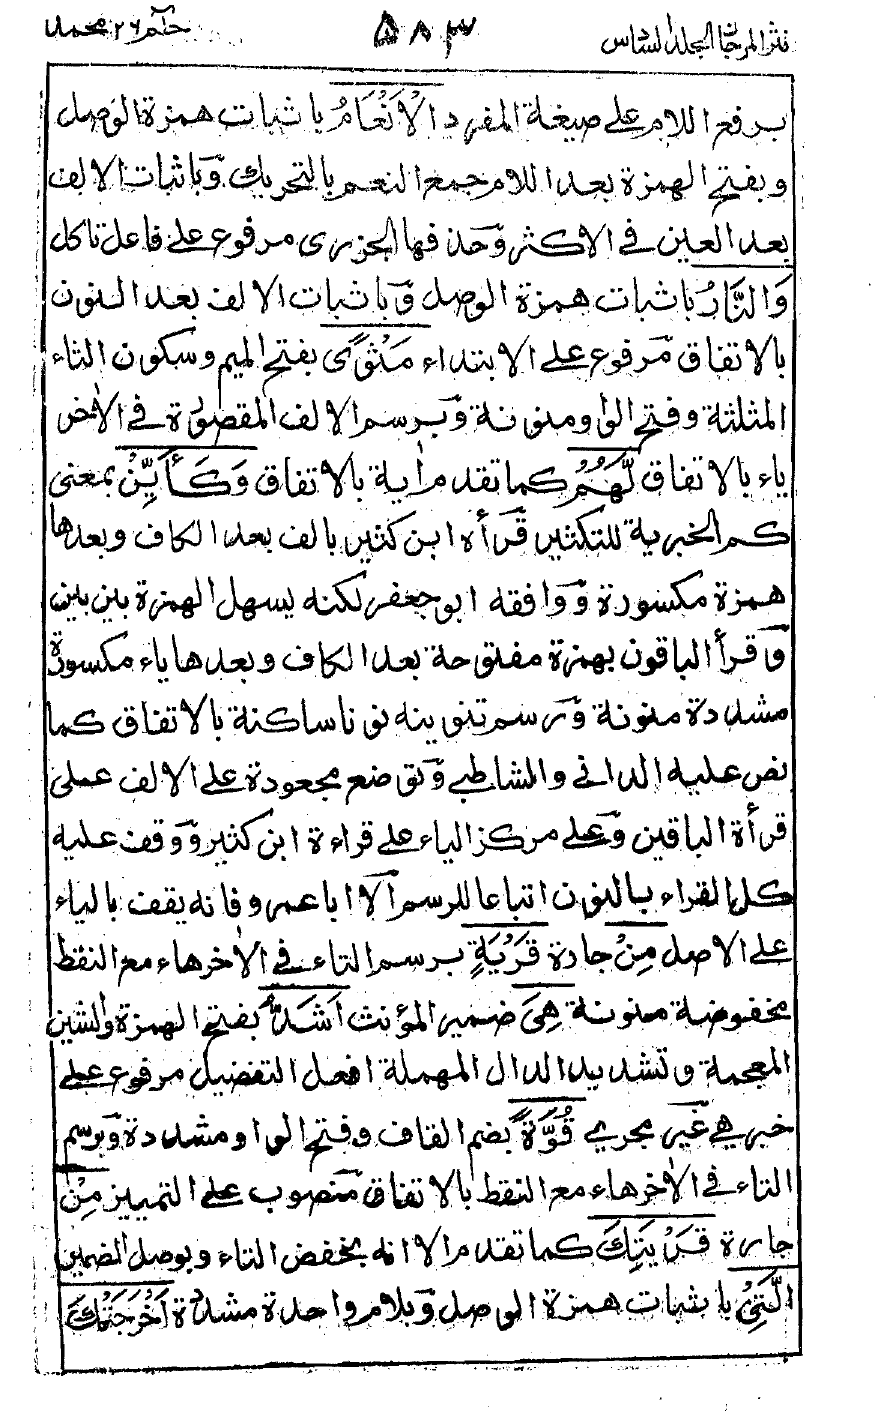 نثر المرجان المجلد السادس ٥٨٣ حٰم ٢٦ محمد
برفع اللام على صيغة المفرد الْاَنْعَامُ باثبات همزة الوصل
وبفتح الهمزة بعد اللام جمع النعم بالتحريك وباثبات الالف
بعد العين فى الاكثر وحذفها الجزرى مرفوع على فاعل تاكل
وَالنَّارُ باثبات همزة الوصل وباثبات الالف بعد النون
بالاتفاق مرفوع على الابتداء مَثْوًى بفتح الميم وسكون الثاء
المثلثة وفتح الواو منونة وبرسم الالف المقصورة فى الاٰخر
ياء بالاتفاق لَّهُمْ كما تقدم اٰية بالاتفاق وَكَأَيِّنْ بمعنى
كم الخبرية للتكثير قرأه ابن كثير بالف بعد الكاف وبعدها
همزة مكسورة ووافقه ابو جعفر لكنه يسهل الهمزة بين بين
وقرأ الباقون بهمزة مفتوحة بعد الكاف وبعدها ياء مكسورة
مشددة منونة ورسم تنوينه نونا ساكنة بالاتفاق كما
نص عليه الدانى والشاطبے وتوضع مجعودة على الالف على
قرأة الباقين وعلى مركز الياء على قراءة ابن كثير ووقف عليه
كل القراء بالنون اتباعا للرسم الا ابا عمرو فانه يقف بالياء
على الاصل مِنْ جارة قَرْيَةٍ برسم التاء فى الاٰخر هاء مع النقط
مخفوضة منونة هِىَ ضمير المؤنث اَشَدُّ بفتح الهمزة والشين
المعجمة وتشديد الدال المهملة افعل التفضيل مرفوع على
خبر هي غير مجرى قُوَّةً بضم القاف وفتح الواو مشددة وبرسم
التاء فى الاٰخر هاء مع النقط بالاتفاق منصوب على التمييز مِنْ
جارة قَرْيَتِكَ كما تقدم الا انه بخفض التاء وبوصل الضمير
الَّتِىْ باثبات همزة الوصل وبلام واحدة مشددة اَخْرَجَتْكَ